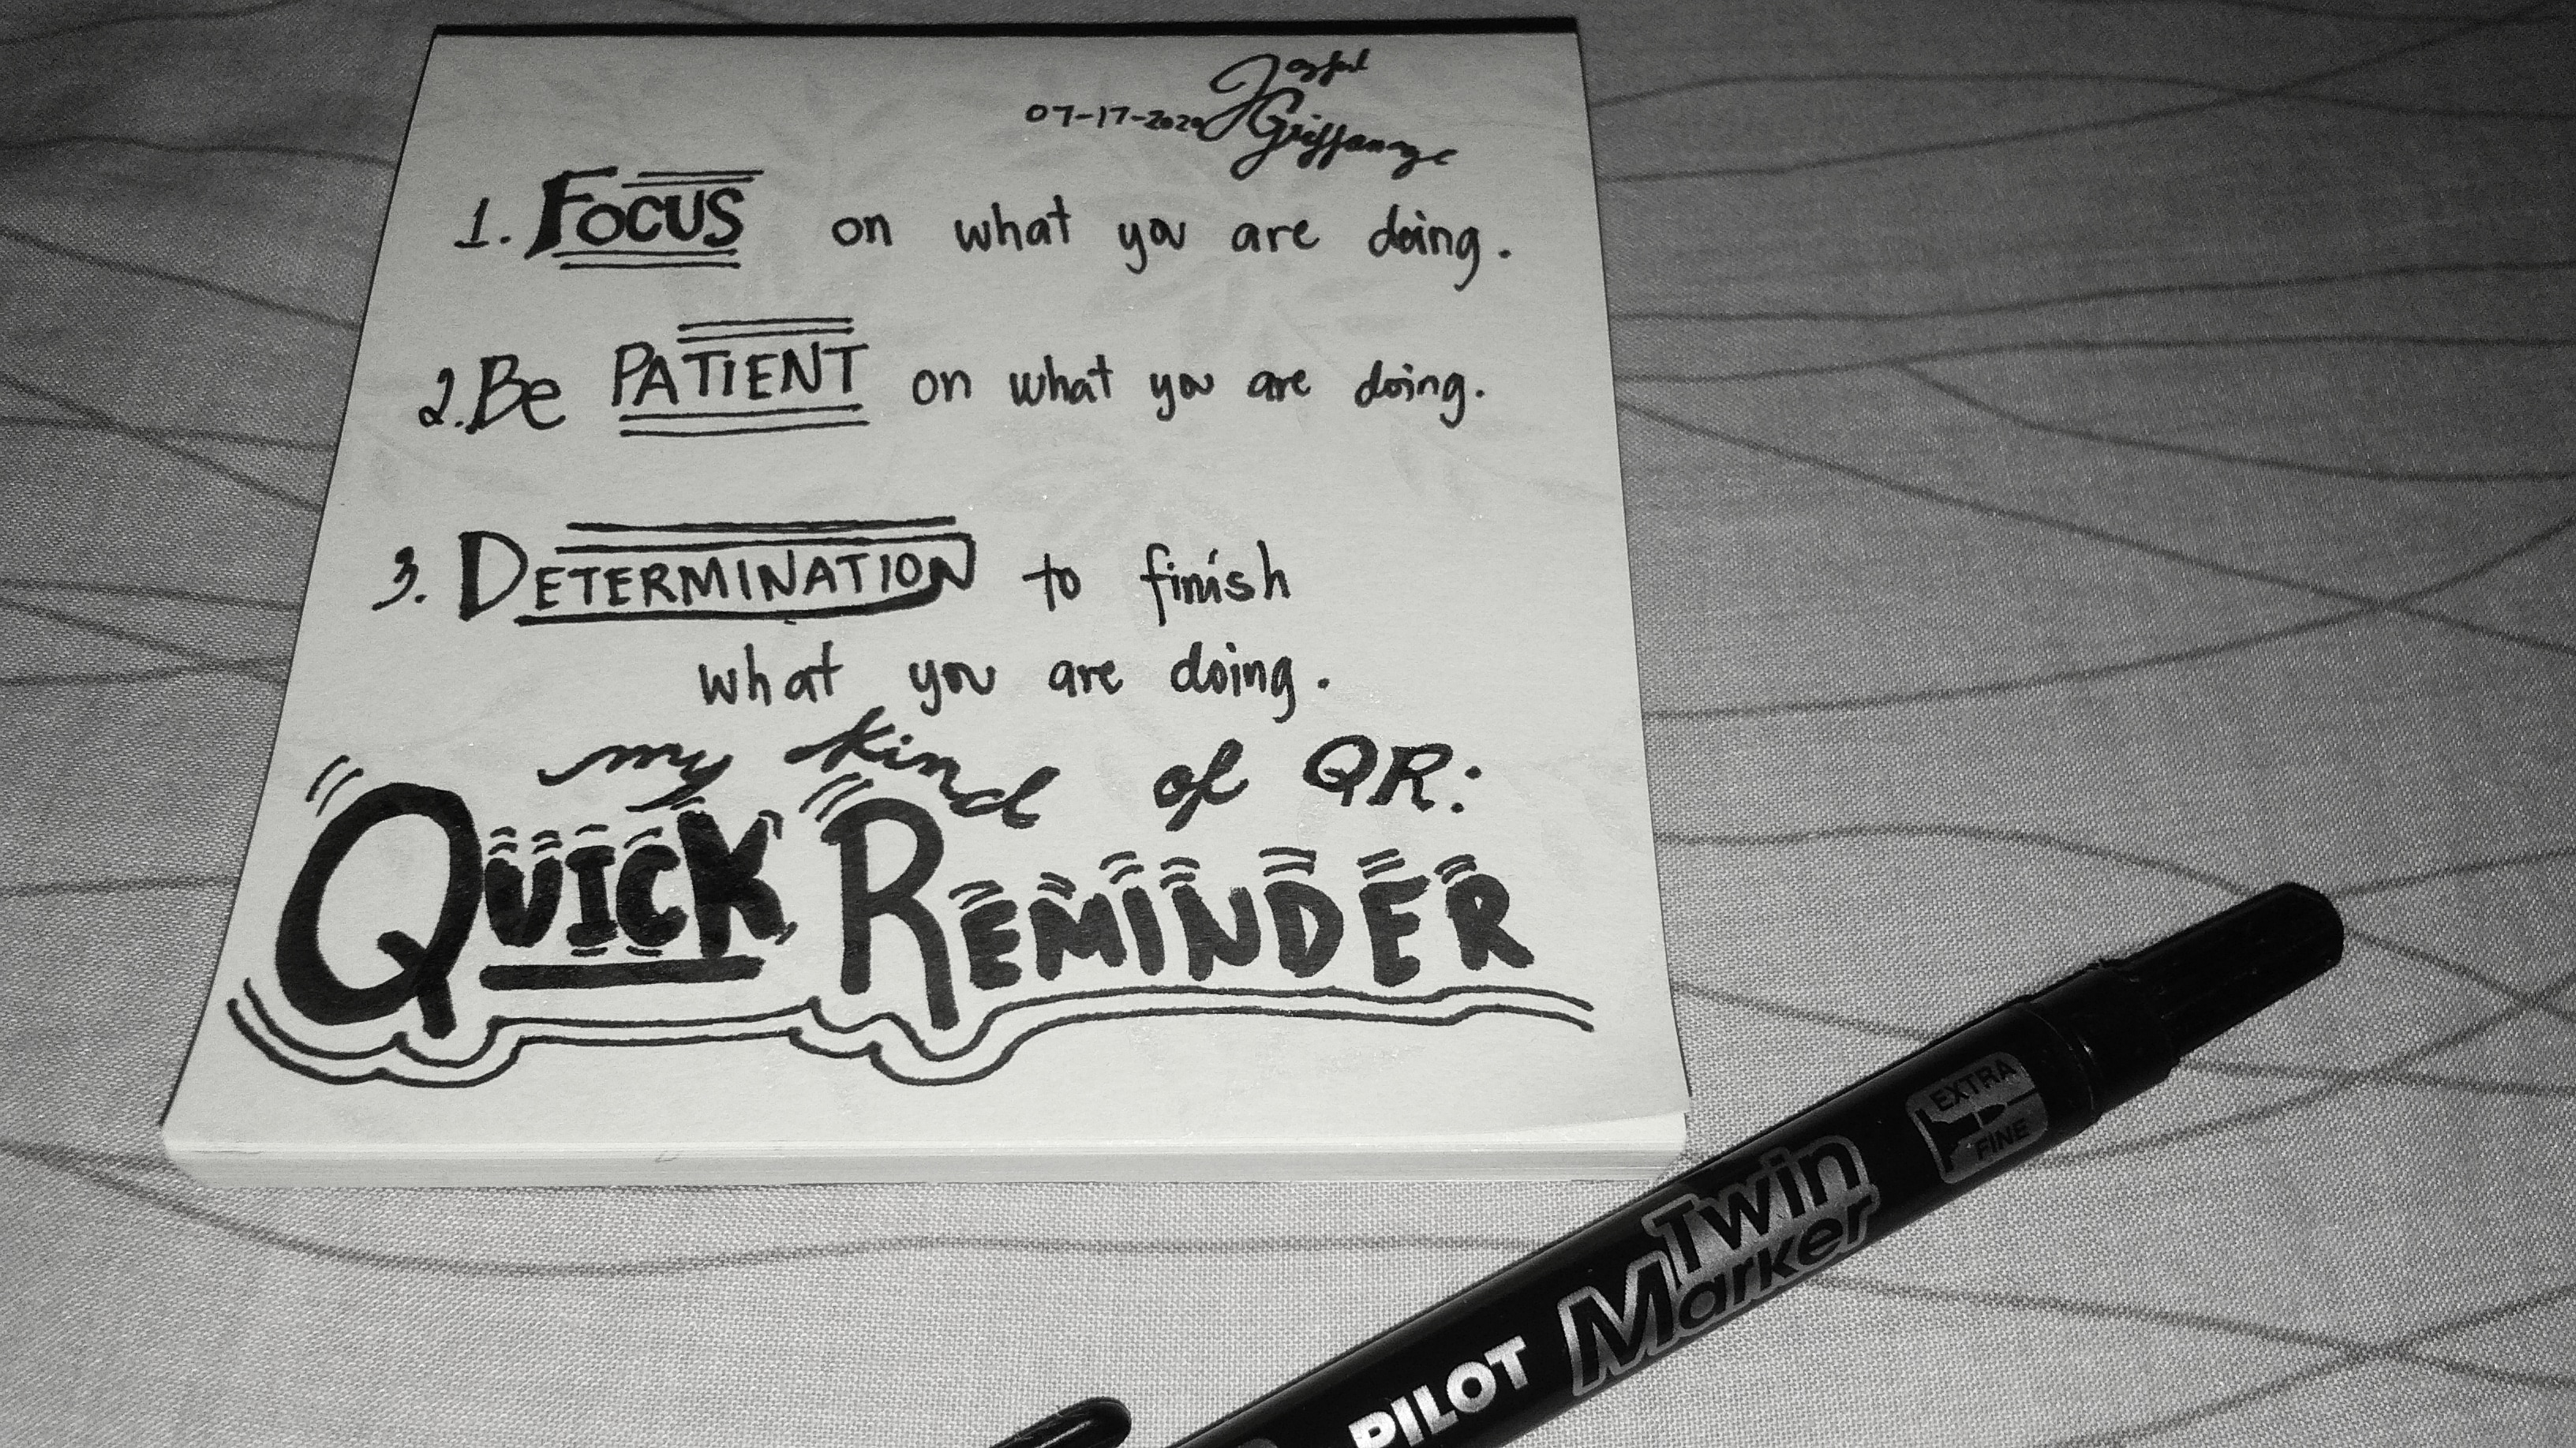 Joyful
07-17-2020
1. FOCUS on what you are doing.
2. Be PATIENT on what you are doing.
3. DETERMINATION to finish
what you are doing.
my kind of QR:
QUICK REMINDER
EXTRA
FINE
Twin
Marker
PILOT